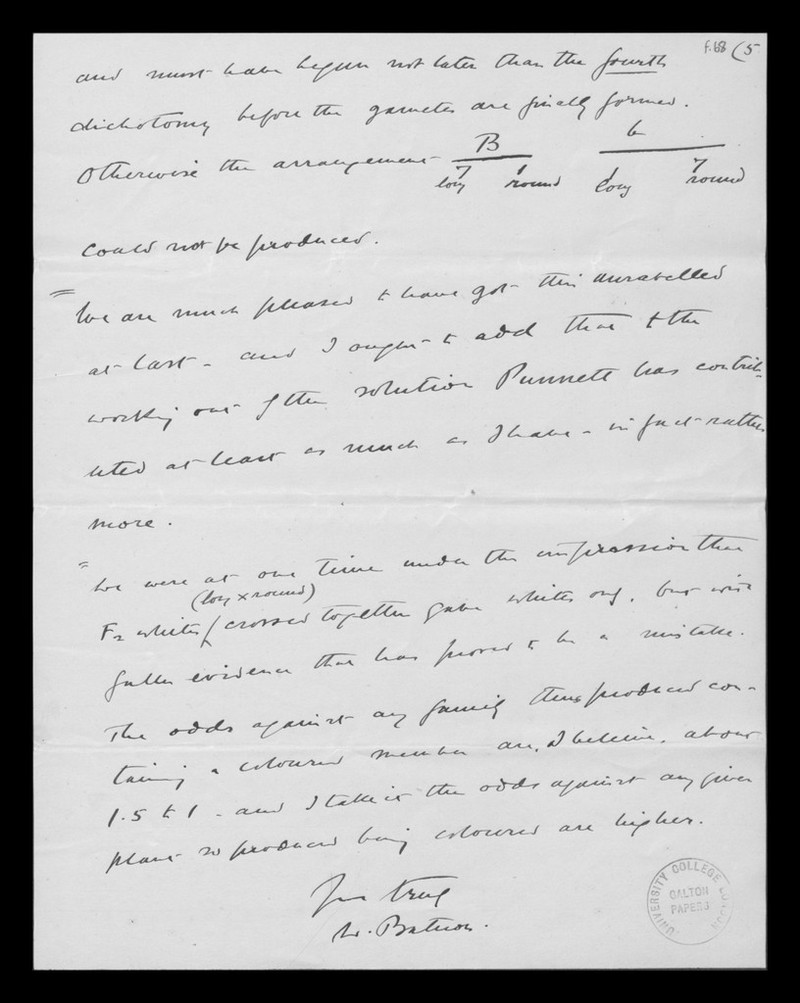 f.68 (5
and must have begun not later than the fourth
dichotomy before the gametes are finally formed.
Otherwise the arrangement B b
7 long 1 round 1 long 7 round
could not be produced.
= We are much pleased to have got this unravelled
at last - and I ought to add that to the
working out of the solution Punnett has contrib-
uted at least as much as I have - in fact rather
more.
= We were at one time under the impression that
(long x round)
F2 whites / crossed together gave whites only, but with
fuller evidence that has proved to be a mistake.
The odds against any family thus produced con-
taining a coloured member are, I believe, about
1.5 to 1 - and I take it the odds against any given
plant so produced being coloured are higher.
Yrs truly
W. Bateson.
UNIVERSITY COLLEGE LONDON
GALTON
PAPERS